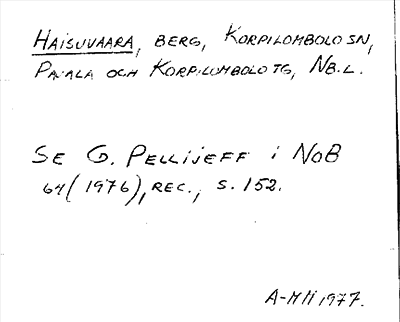 HAISUVAARA, BERG, KORPILOMBOLO SN,
PAJALA OCH KORPILOMBOLO TG, NB.L.
SE G. PELLIJEFF i NoB
64 (1976), REC., S. 152.
A-M H 1977.